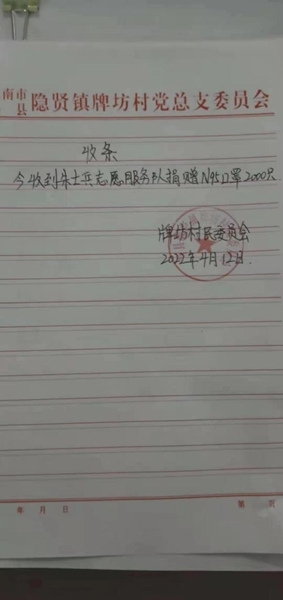 南市县隐贤镇牌坊村党总支委员会
收条
今收到朱士兵志愿服务队捐赠N95口罩2000只
牌坊村民委员会
2022年4月12日.
年 月 日
第 页